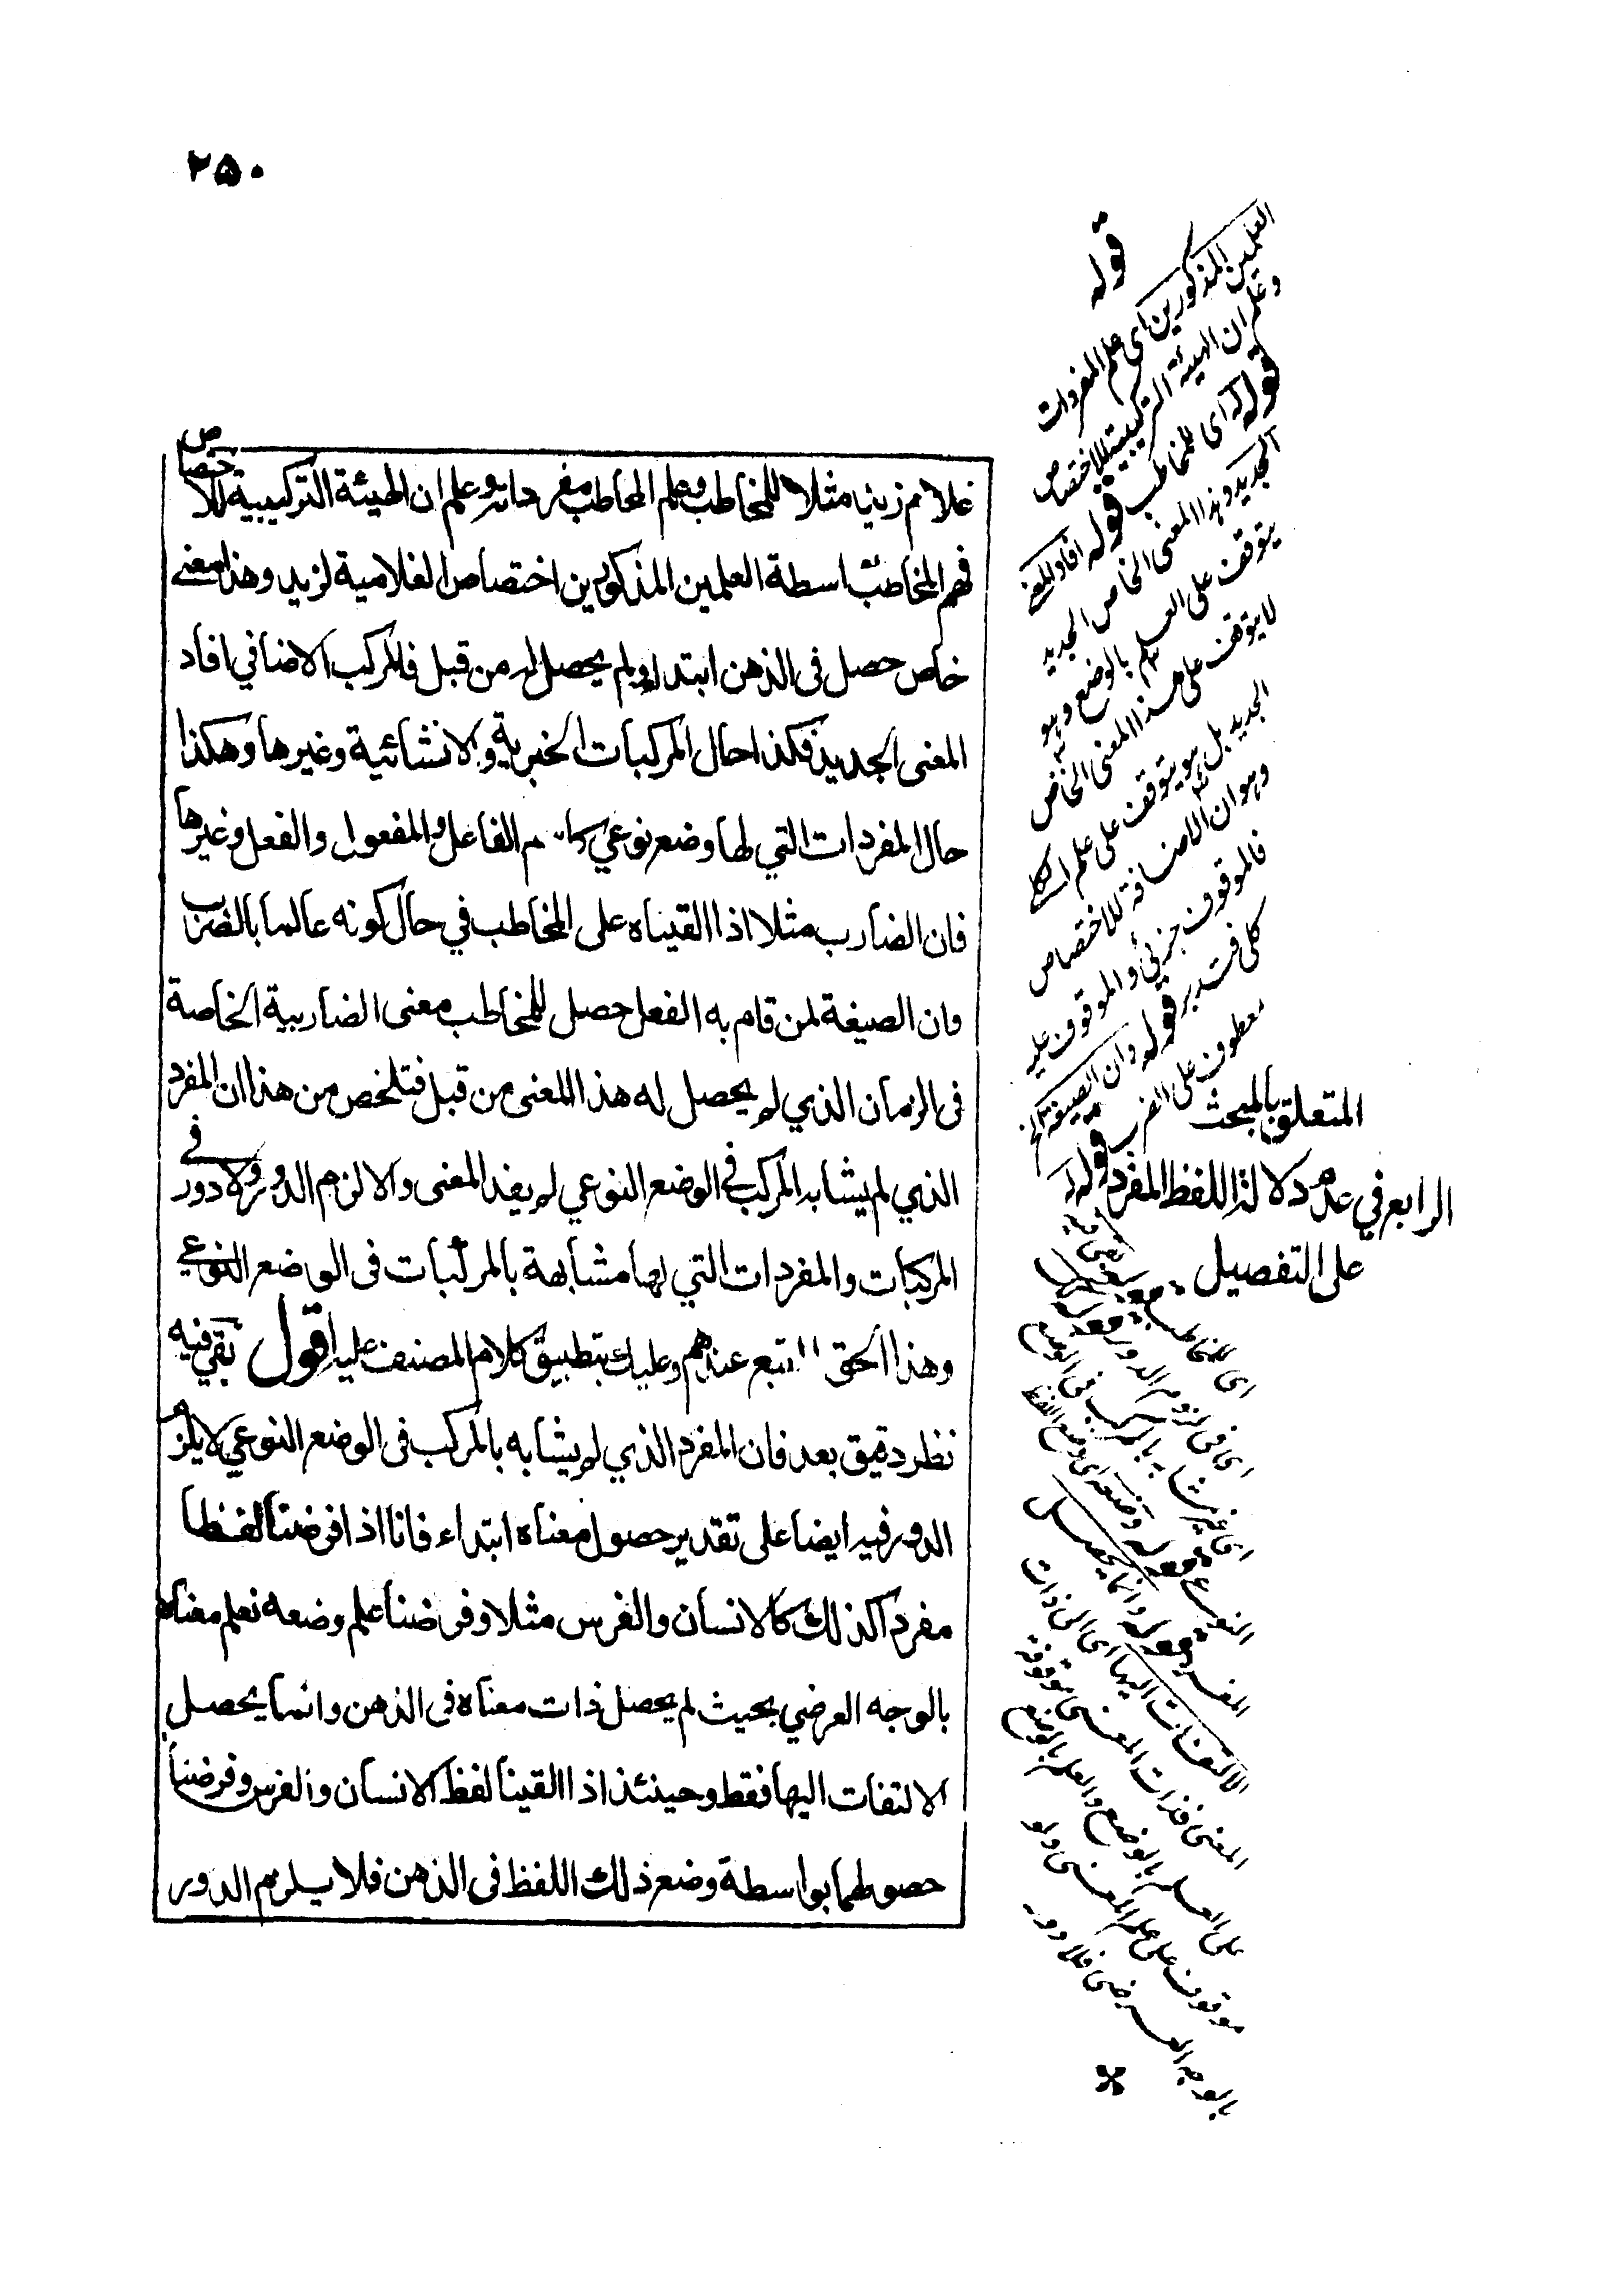 ۲۵۰
غلام زيد مثلا للمخاطب وعلم المخاطب مفرداته وعلم ان الهيئة التركيبية للاختصاص
فهم المخاطب بواسطة العلمين المذكورين اختصاص الغلامية لزيد وهذا معنى
خاص حصل فى الذهن ابتداء ولم يحصل له من قبل فالمركب الاضافي افاد
المعنى الجديد فكذا حال المركبات الخبرية والانشائية وغيرها وهكذا
حال المفردات التي لها وضع نوعي كاسم الفاعل والمفعول والفعل وغيرها
فان الضارب مثلا اذا القيناه على المخاطب في حال كونه عالما بالضرب
وان الصيغة لمن قام به الفعل حصل للمخاطب معنى الضاربية الخاصة
فى الزمان الذي لم يحصل له هذا المعنى من قبل فتلخص من هذا ان المفرد
الذي لم يشابه المركب في الوضع النوعي لم يفد المعنى والا لزم الدور ولا دور في
المركبات والمفردات التي لها مشابهة بالمركبات فى الوضع النوعي
وهذا الحق اتبع عندهم وعليك بتطبيق كلام المصنف عليه اقول بقي فيه
نظر دقيق بعد فان المفرد الذي لم يشابه بالمركب فى الوضع النوعي لا يلزم
الدور فيه ايضا على تقدير حصول معناه ابتداء فانا اذا فرضنا لفظا
مفردا كذلك كالانسان والفرس مثلا وفرضنا علم وضعه نعلم معناه
بالوجه العرضي بحيث لم يحصل ذات معناه فى الذهن وانما يحصل
الالتفات اليها فقط وحينئذ اذا القينا لفظ الانسان والفرس وفرضنا
حصولهما بواسطة وضع ذلك اللفظ فى الذهن فلا يلزم الدور
قوله
العلمين المذكورين اى علم المفردات
وعلم ان الهيئة التركيبية للاختصاص
قوله له اى للمخاطب قوله افاد المعنى
الجديد وهذا المعنى الخاص الجديد
يتوقف على العلم بالوضع وهو
لا يتوقف على هذا المعنى الخاص
الجديد بل هو يتوقف على علم
وهو ان الاضافة للاختصاص
فالموقوف جزئي والموقوف عليه
كلى فتدبر قوله وان الصيغة الخ
معطوف على الضرب قوله له
المتعلق بالمبحث
الرابع في عدم دلالة اللفظ المفرد
على التفصيل
اى للمخاطب
اى فى لزوم الدور
اى غير مشابه بالمركب فى الوضع
النوعى قوله وضعه اى وضع اللفظ
المفرد قوله وانما يحصل
الالتفات اليها اى الى ذات
المعنى فذات المعنى موقوفة
على العلم بالوضع والعلم بالوضع
موقوف على علم المعنى ولو
بالوجه العرضى فلا دور